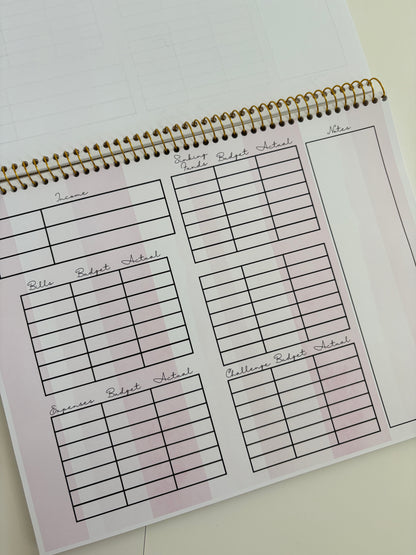 Income
Sinking Funds Budget Actual
Notes
Bills Budget Actual
Expenses Budget Actual
Challenge Budget Actual